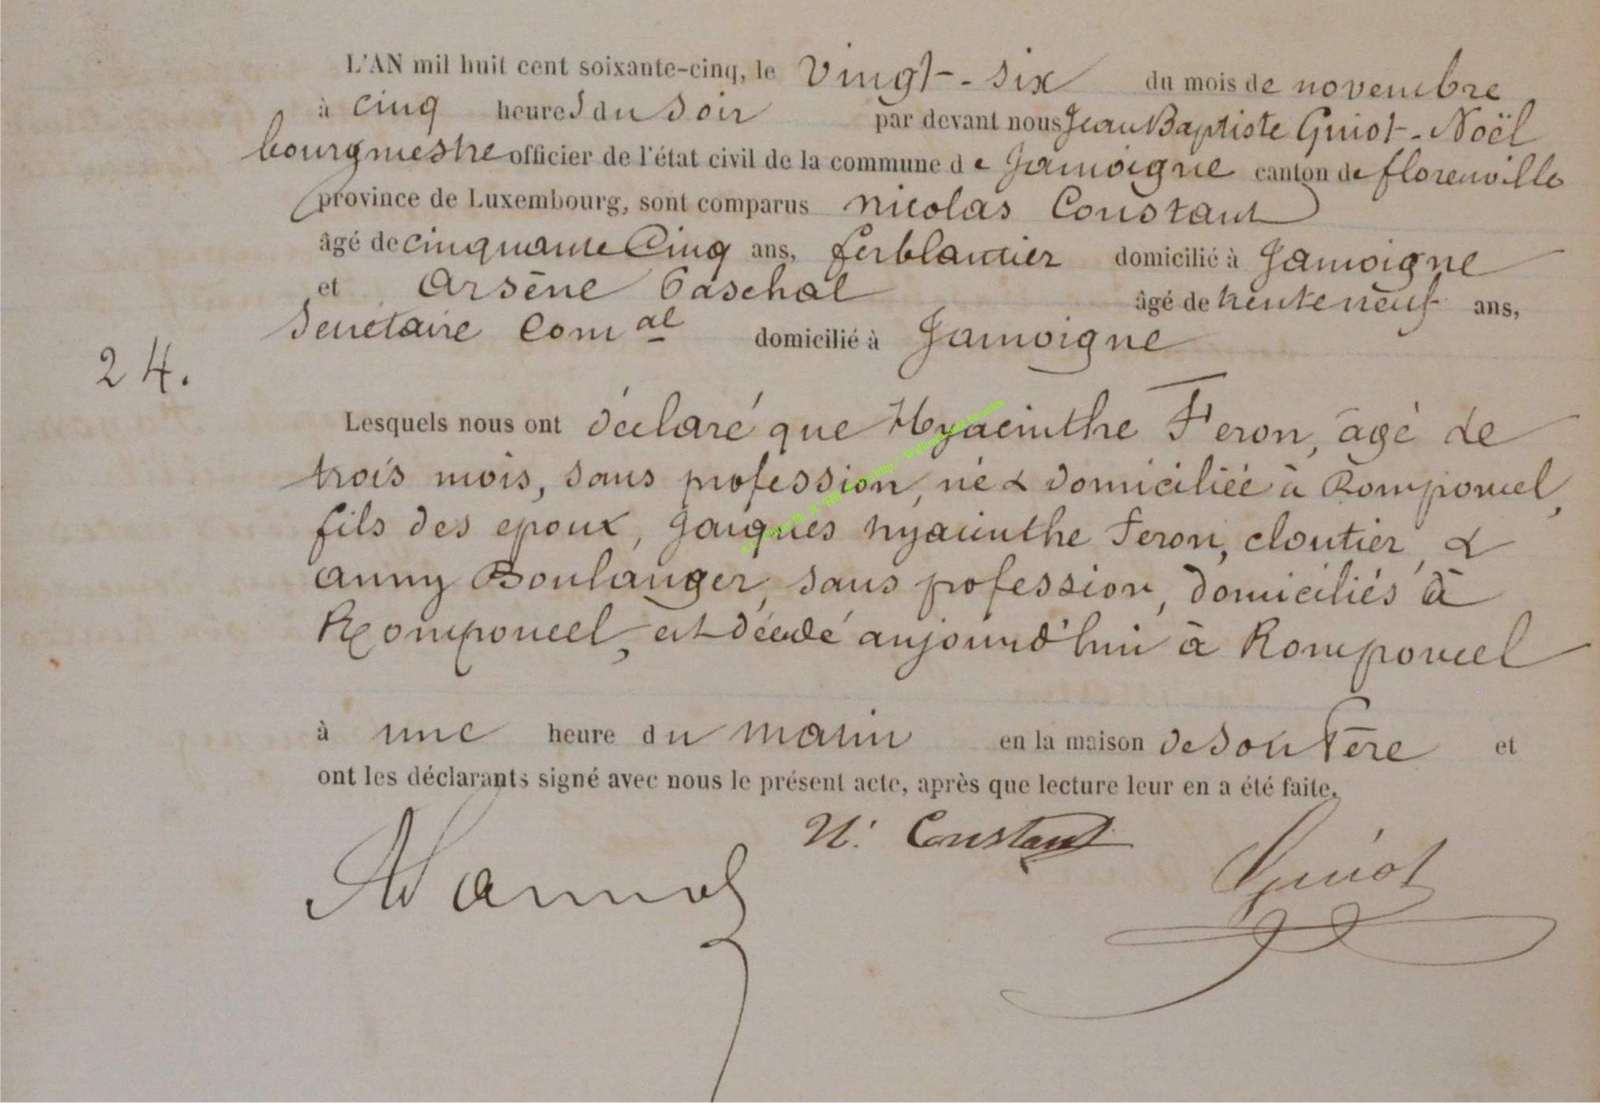 L'AN mil huit cent soixante-cinq, le vingt-six du mois de novembre
à cinq heures du soir par devant nous Jean Baptiste Guiot-Noël
bourgmestre officier de l'état civil de la commune de Jamoigne canton de florenville
province de Luxembourg, sont comparus Nicolas Constant
âgé de cinquante Cinq ans, ferblantier domicilié à Jamoigne
et Arsène Paschal âgé de trente neuf ans,
Secrétaire Comal domicilié à Jamoigne
24.
Lesquels nous ont déclaré que Hyacinthe Feron, âgé de
trois mois, sans profession, né & domiciliée à Romponcel,
fils des epoux, Jacques hyacinthe Feron, cloutier, &
anny Boulanger, sans profession, domiciliés à
Romponcel, est décédé aujourd'hui à Romponcel
à une heure du matin en la maison de son Père et
ont les déclarants signé avec nous le présent acte, après que lecture leur en a été faite.
N. Constant
Guiot